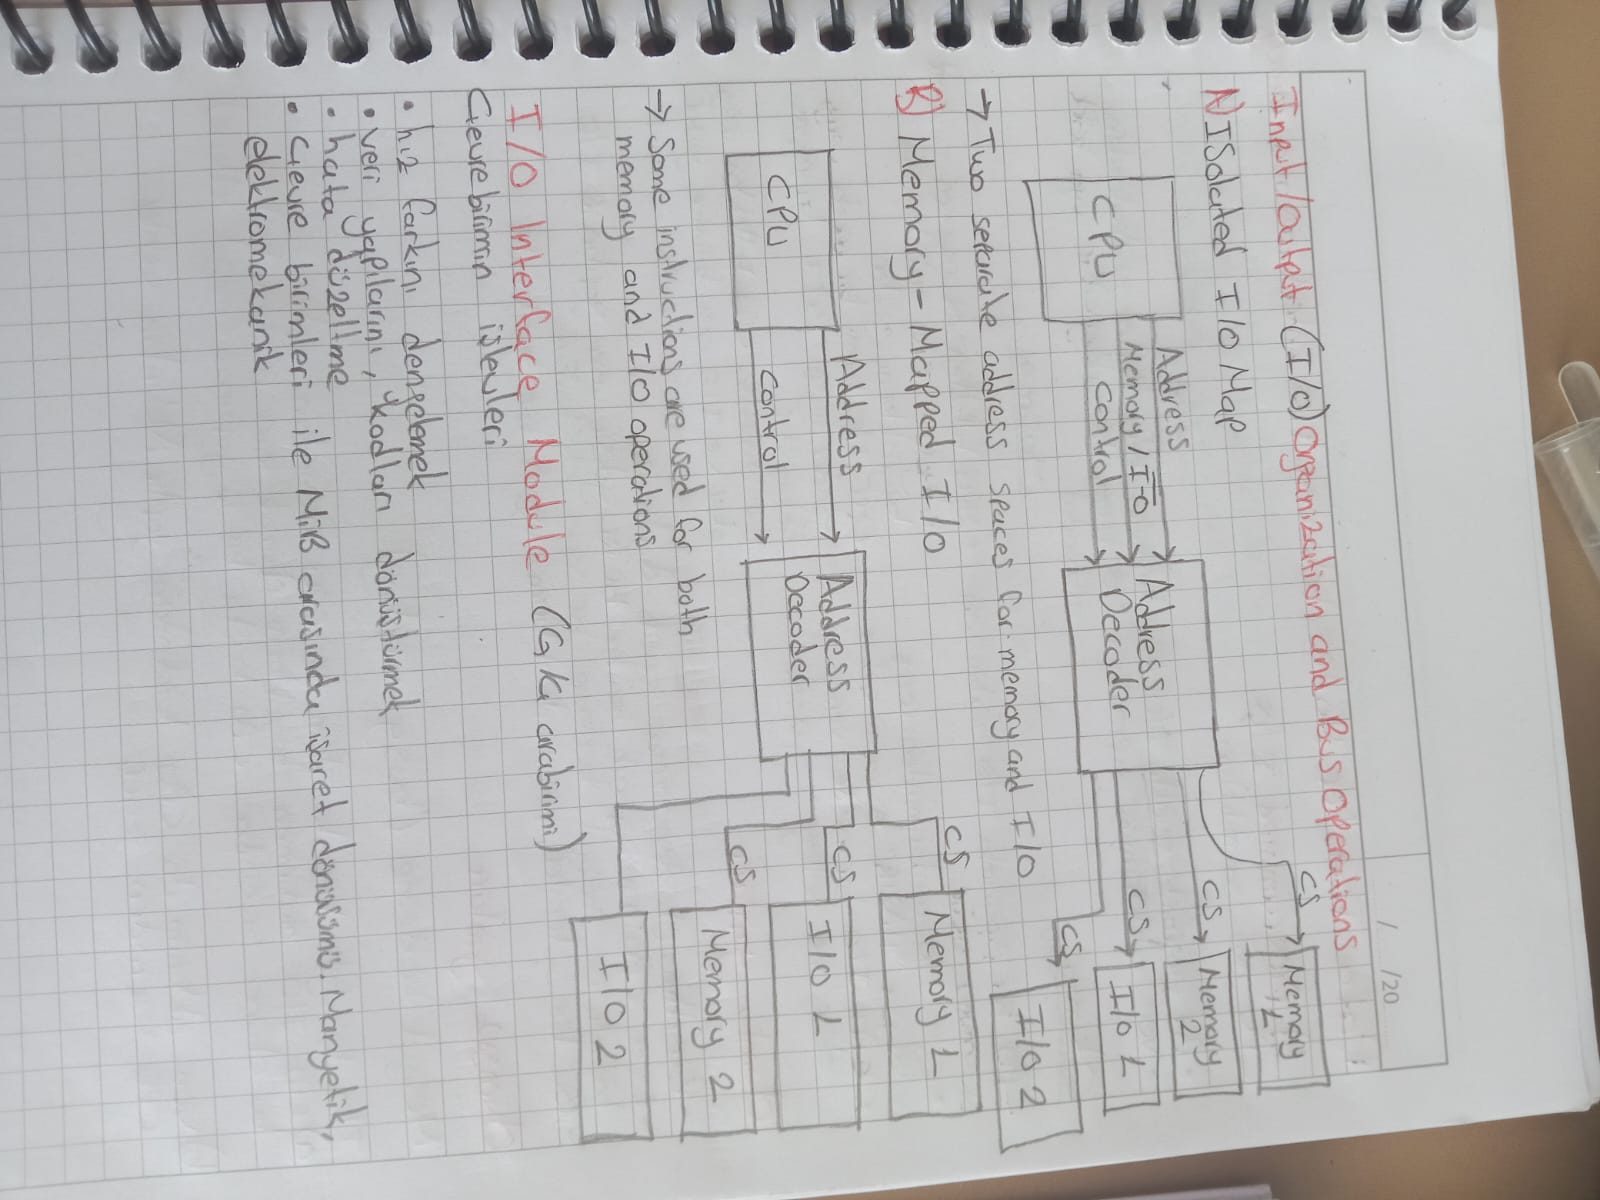 / /20
Input/Output (I/O) Organization and Bus Operations
A) Isolated I/O Map
CPU
Address
Memory / I-O
Control
Address
Decoder
CS
Memory
1
CS
Memory
2
CS
I/O 1
CS
I/O 2
→ Two separate address spaces for memory and I/O
B) Memory-Mapped I/O
CPU
Address
Control
Address
Decoder
CS
Memory 1
CS
I/O 1
CS
Memory 2
I/O 2
→ Some instructions are used for both
memory and I/O operations
I/O Interface Module (G/Ç arabirimi)
Çevre birimin işlevleri
• hız farkını dengelemek
• veri yapılarını, kodları dönüştürmek
• hata düzeltme
• Çevre birimleri ile MiB arasında işaret dönüşümü. Manyetik,
elektromekanik